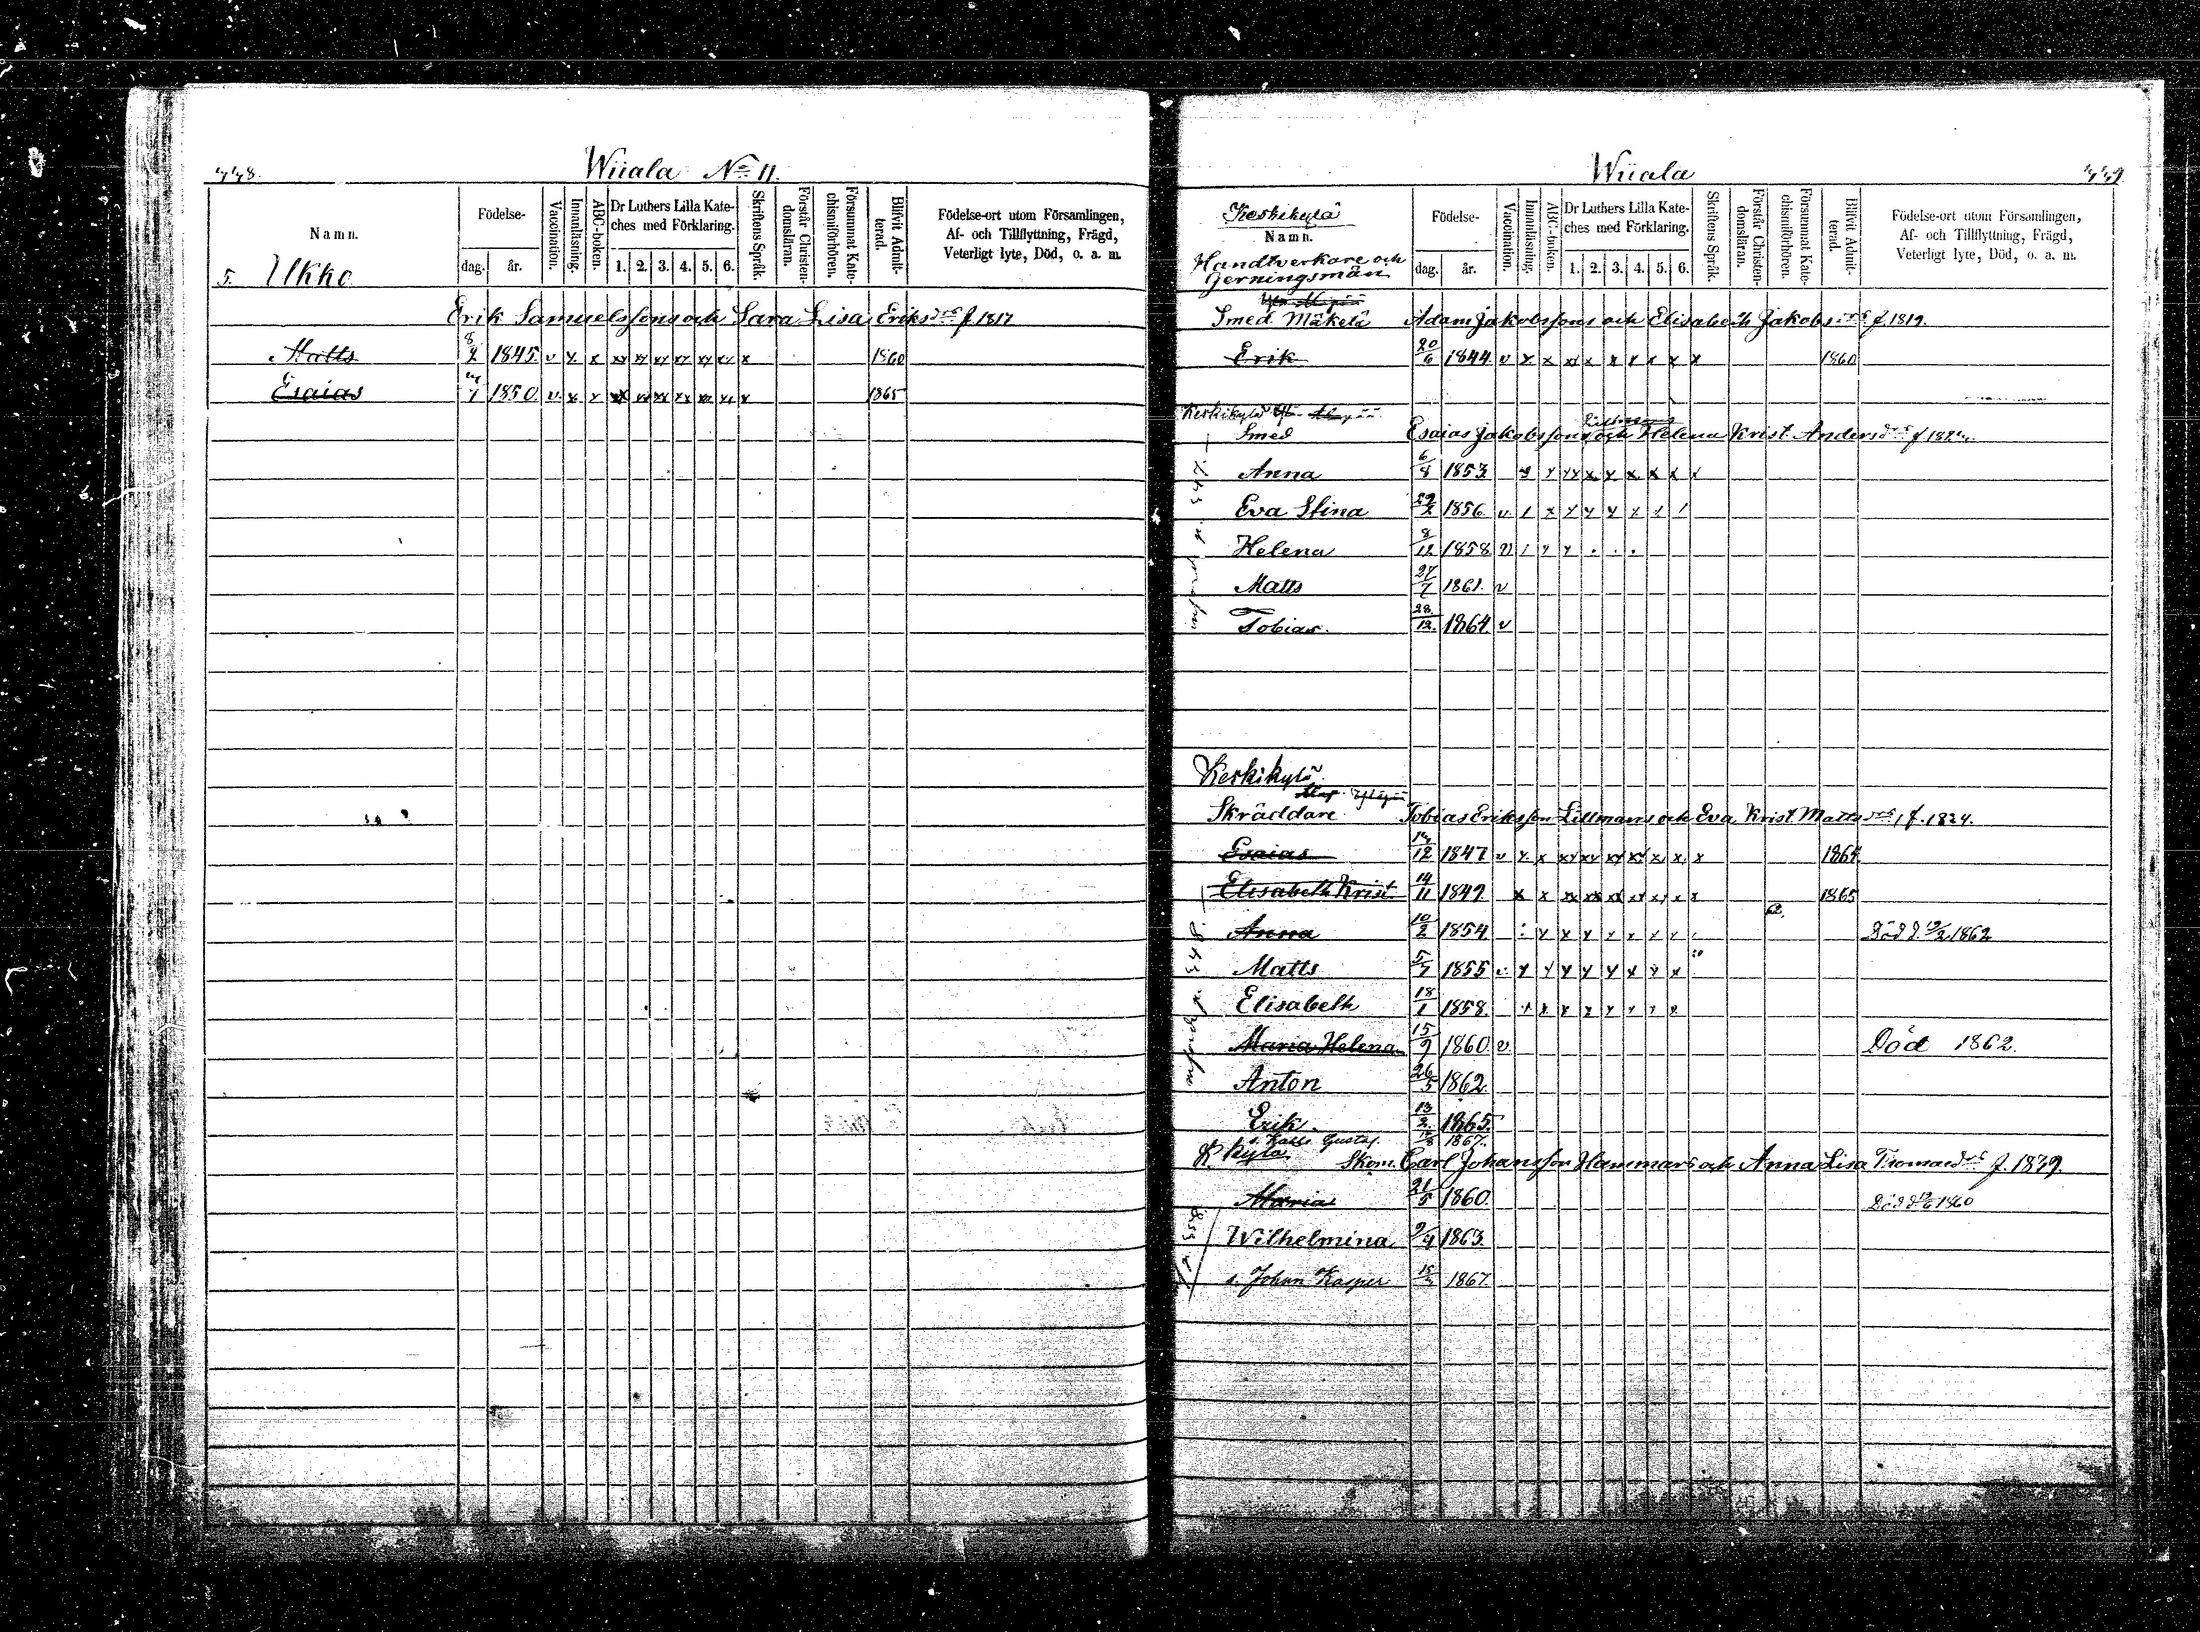 Wiiala No 11.
Namn.
Födelse-
dag. år.
Vaccination.
Innanläsning.
ABC-boken.
Dr Luthers Lilla Kate-
ches med Förklaring.
1. 2. 3. 4. 5. 6.
Skriftens Språk.
Förstår Christen-
domsläran.
Försummat Kate-
chismiförhören.
Blifvit Admit-
terad.
Födelse-ort utom Församlingen,
Af- och Tillflyttning, Frägd,
Veterligt lyte, Död, o. a. m.
5. Ukko
Erik Samuelssons och Sara Lisa Eriksdrs f 1817
Matts 8/2 1845 v x x xx xx xx xx xx xx x 1860
Esaias 1850 v x x xx xx xx xx xx xx x 1865
Wiiala 449
Keskikylä
Namn.
Handtverkare och
Gerningsmän
Födelse-
dag. år.
Vaccination.
Innanläsning.
ABC-boken.
Dr Luthers Lilla Kate-
ches med Förklaring.
1. 2. 3. 4. 5. 6.
Skriftens Språk.
Förstår Christen-
domsläran.
Försummat Kate-
chismiförhören.
Blifvit Admit-
terad.
Födelse-ort utom Församlingen,
Af- och Tillflyttning, Frägd,
Veterligt lyte, Död, o. a. m.
Smed Mäkelä Adam Jakobssons och Elisabeth Jakobsdrs f. 1819.
Erik 20/6 1844 v x x xx x x x x x x 1860
Keskikylä
Smed Esaias Jakobssons och Helena Krist. Andersdrs
Anna 6/8 1853
Eva Stina 1856 v
Helena 8/12 1858 v
Matts 27/7 1861 v
Tobias. 28/12 1864 v
Keskikylä
Skräddare Tobias Eriksson Lillmans och Eva Krist Mattsdrs f. 1824.
Esaias 1847 v x x xx xx xx xx x x x 1864
Elisabeth Krist. 14/11 1849 x x xx xx xx xx x x x 1865
62.
Anna 10/2 1854 Död d. 1862
Matts 5/7 1855
Elisabeth 18/1 1858
Maria Helena 15/9 1860 v Död 1862.
Anton 26/5 1862
Erik 13/2 1865.
s. Kalle Gustaf 1867.
K kylä Skom. Carl Johansson Hammars och Anna Lisa Thomasdrs f. 1839.
Maria 21/5 1860 Död d 1860
Wilhelmina 9/4 1863
s. Johan Kasper 1867